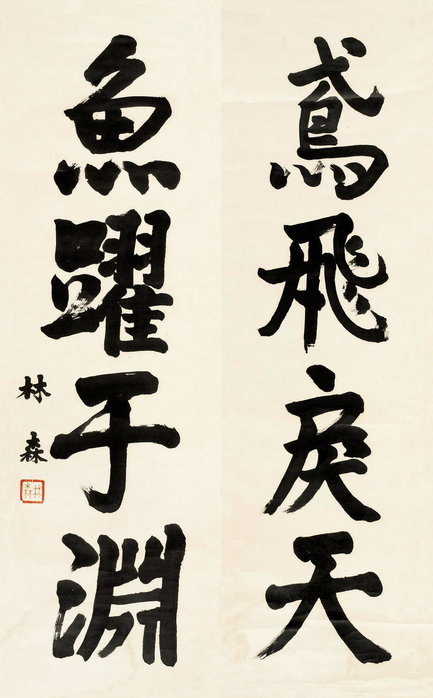 鳶飛戾天
魚躍于淵
林森
林森